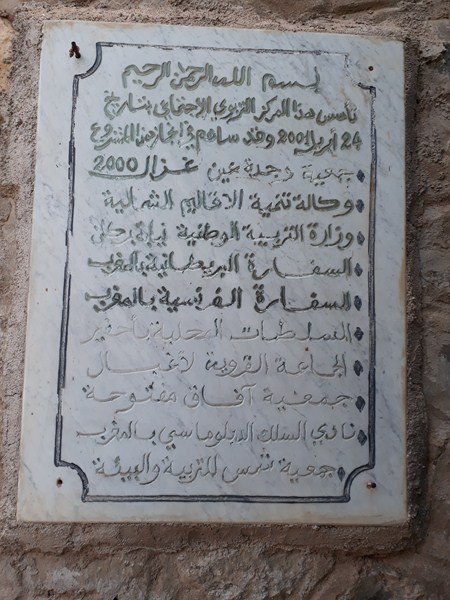 بسم الله الرحمن الرحيم
تأسس هذا المركز التربوي الاجتماعي بتاريخ
24 أبريل 2001 وقد ساهم في إنجاز هذا المشروع
جمعية وجدة عين غزال 2000
وكالة تنمية الاقاليم الشمالية
وزارة التربية الوطنية نيابة بركان
السفارة البريطانية بالمغرب
السفارة الفرنسية بالمغرب
السلطات المحلية بأحفير
الجماعة القروية لأغبال
جمعية آفاق مفتوحة
نادي السلك الدبلوماسي بالمغرب
جمعية شمس للتربية والبيئة